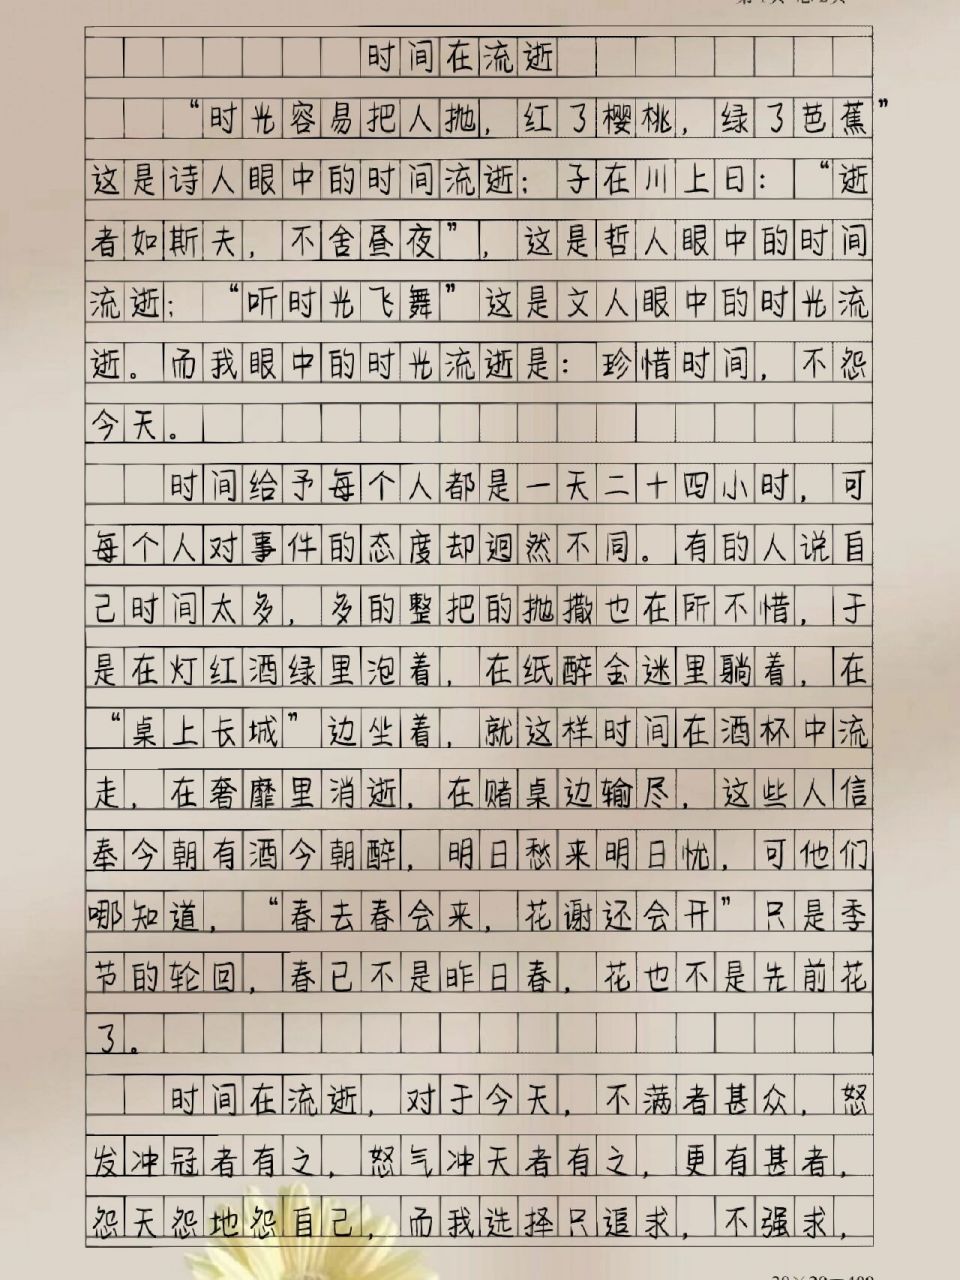 时间在流逝
“时光容易把人抛，红了樱桃，绿了芭蕉”
这是诗人眼中的时间流逝；子在川上曰：“逝
者如斯夫，不舍昼夜”，这是哲人眼中的时间
流逝；“听时光飞舞”这是文人眼中的时光流
逝。而我眼中的时光流逝是：珍惜时间，不怨
今天。
时间给予每个人都是一天二十四小时，可
每个人对事件的态度却迥然不同。有的人说自
己时间太多，多的整把的抛撒也在所不惜，于
是在灯红酒绿里泡着，在纸醉金迷里躺着，在
“桌上长城”边坐着，就这样时间在酒杯中流
走，在奢靡里消逝，在赌桌边输尽，这些人信
奉今朝有酒今朝醉，明日愁来明日忧，可他们
哪知道，“春去春会来，花谢还会开”只是季
节的轮回，春已不是昨日春，花也不是先前花
了。
时间在流逝，对于今天，不满者甚众，怒
发冲冠者有之，怒气冲天者有之，更有甚者，
怨天怨地怨自己，而我选择只追求，不强求，